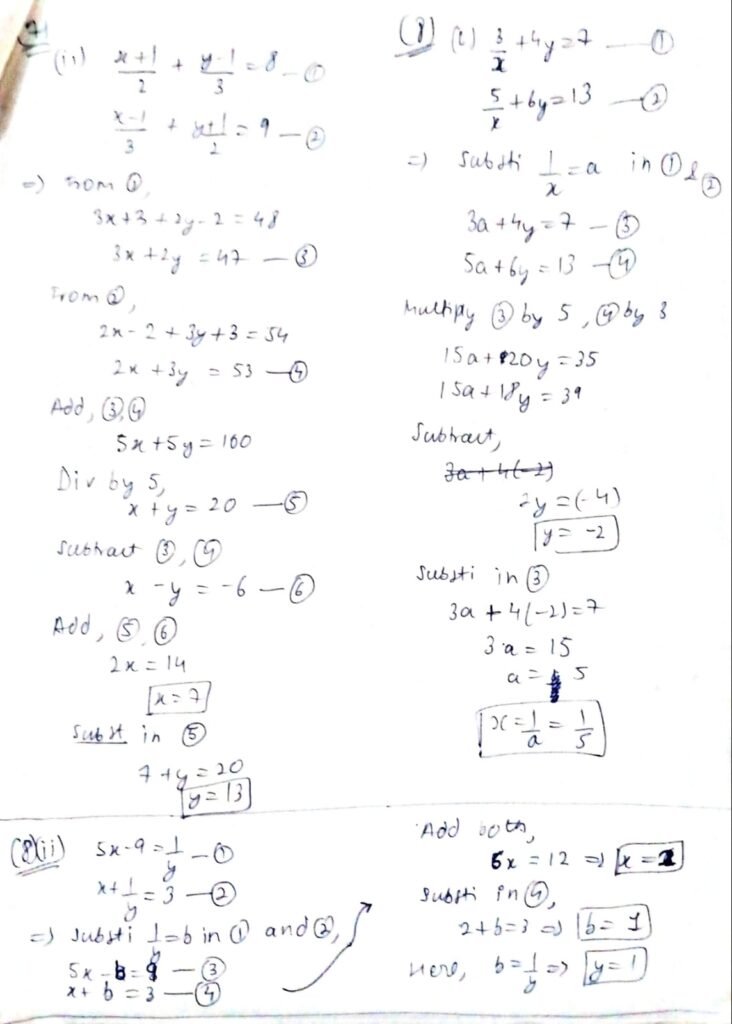 7)
(ii) x+1/2 + y-1/3 = 8 — ①
x-1/3 + y+1/2 = 9 — ②
=) From ①,
3x+3+2y-2 = 48
3x+2y = 47 — ③
From ②,
2x-2+3y+3 = 54
2x+3y = 53 — ④
Add, ③,④
5x+5y = 100
Div by 5,
x+y = 20 — ⑤
Subtract ③, ④
x-y = -6 — ⑥
Add, ⑤ ⑥
2x = 14
x = 7
Subst in ⑤
7+y = 20
y = 13
(8) (i) 3/x + 4y = 7 — ①
5/x + 6y = 13 — ②
=) Substi 1/x = a in ① & ②
3a+4y = 7 — ③
5a+6y = 13 — ④
Multiply ③ by 5, ④ by 3
15a+20y = 35
15a+18y = 39
Subtract,
3a+4(-2)
2y = (-4)
y = -2
Substi in ③
3a+4(-2) = 7
3a = 15
a = 5
x = 1/a = 1/5
(8)(ii) 5x-9 = 1/y — ①
x+1/y = 3 — ②
=) Substi 1/y = b in ① and ②,
5x-b = 9 — ③
x+b = 3 — ④
Add both,
6x = 12 => x = 2
Substi in ④,
2+b = 3 => b = 1
Here, b = 1/y => y = 1